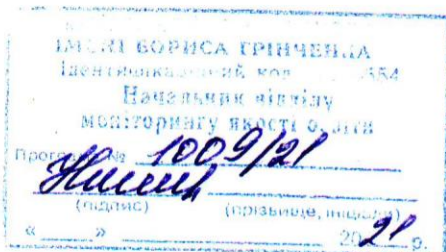 ІМЕНІ БОРИСА ГРІНЧЕНКА
Ідентифікаційний код
Начальник відділу
моніторингу якості освіти
Програма № 1009/21
(підпис) (прізвище, ініціали)
« » 2021 р.